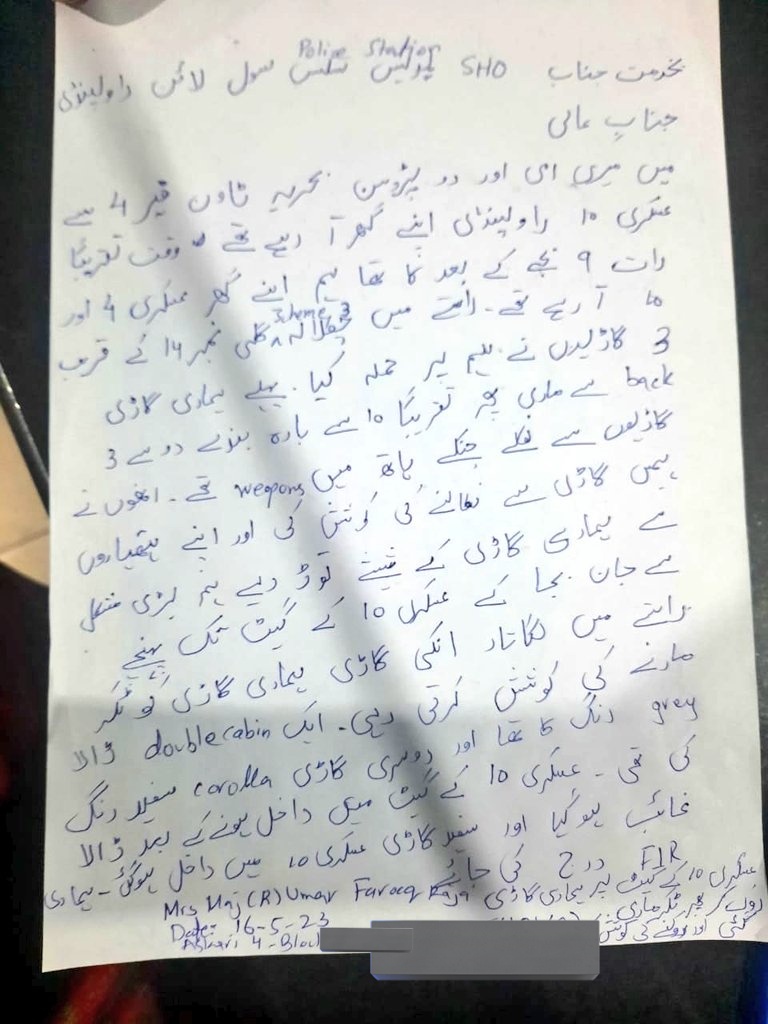 بخدمت جناب SHO پولیس سٹیشن سول لائن راولپنڈی
Police Station
جنابِ عالی
میں میری امی اور دو پڑوسن بحریہ ٹاون فیز 4 سے
عسکری 10 راولپنڈی اپنے گھر آ رہے تھے وقت تقریباً
رات 9 بجے کے بعد کا تھا ہم اپنے گھر عسکری 4 اور
10 آ رہے تھے۔ راستے میں چکلالہ Scheme 3 گلی نمبر 14 کے قریب
3 گاڑیوں نے ہم پر حملہ کیا۔ پہلے ہماری گاڑی
back سے ماری پھر تقریباً 10 سے بارہ بندے دو سے 3
گاڑیوں سے نکلے جنکے ہاتھ میں weapons تھے۔ انھوں نے
ہمیں گاڑی سے نکالنے کی کوشش کی اور اپنے ہتھیاروں
سے ہماری گاڑی کے شیشے توڑ دیے ہم بڑی مشکل
سے جان بچا کے عسکری 10 کے گیٹ تک پہنچے
راستے میں لگاتار انکی گاڑی ہماری گاڑی کو ٹکر
مارنے کی کوشش کرتی رہی۔ ایک double cabin ڈالا
grey رنگ کا تھا اور دوسری گاڑی corolla سفید رنگ
کی تھی۔ عسکری 10 کے گیٹ میں داخل ہونے کے بعد ڈالا
غائب ہو گیا اور سفید گاڑی عسکری 10 میں داخل ہوگئی۔ ہماری
FIR درج کی جائے
عسکری 10 کے گیٹ پر ہماری گاڑی
Mrs Maj (R) Umar Farooq Raja
روک کر پھر ٹکر ماری
Date: 16-5-23
گئی اور روکنے کی کوشش
Askari 4-Bloc